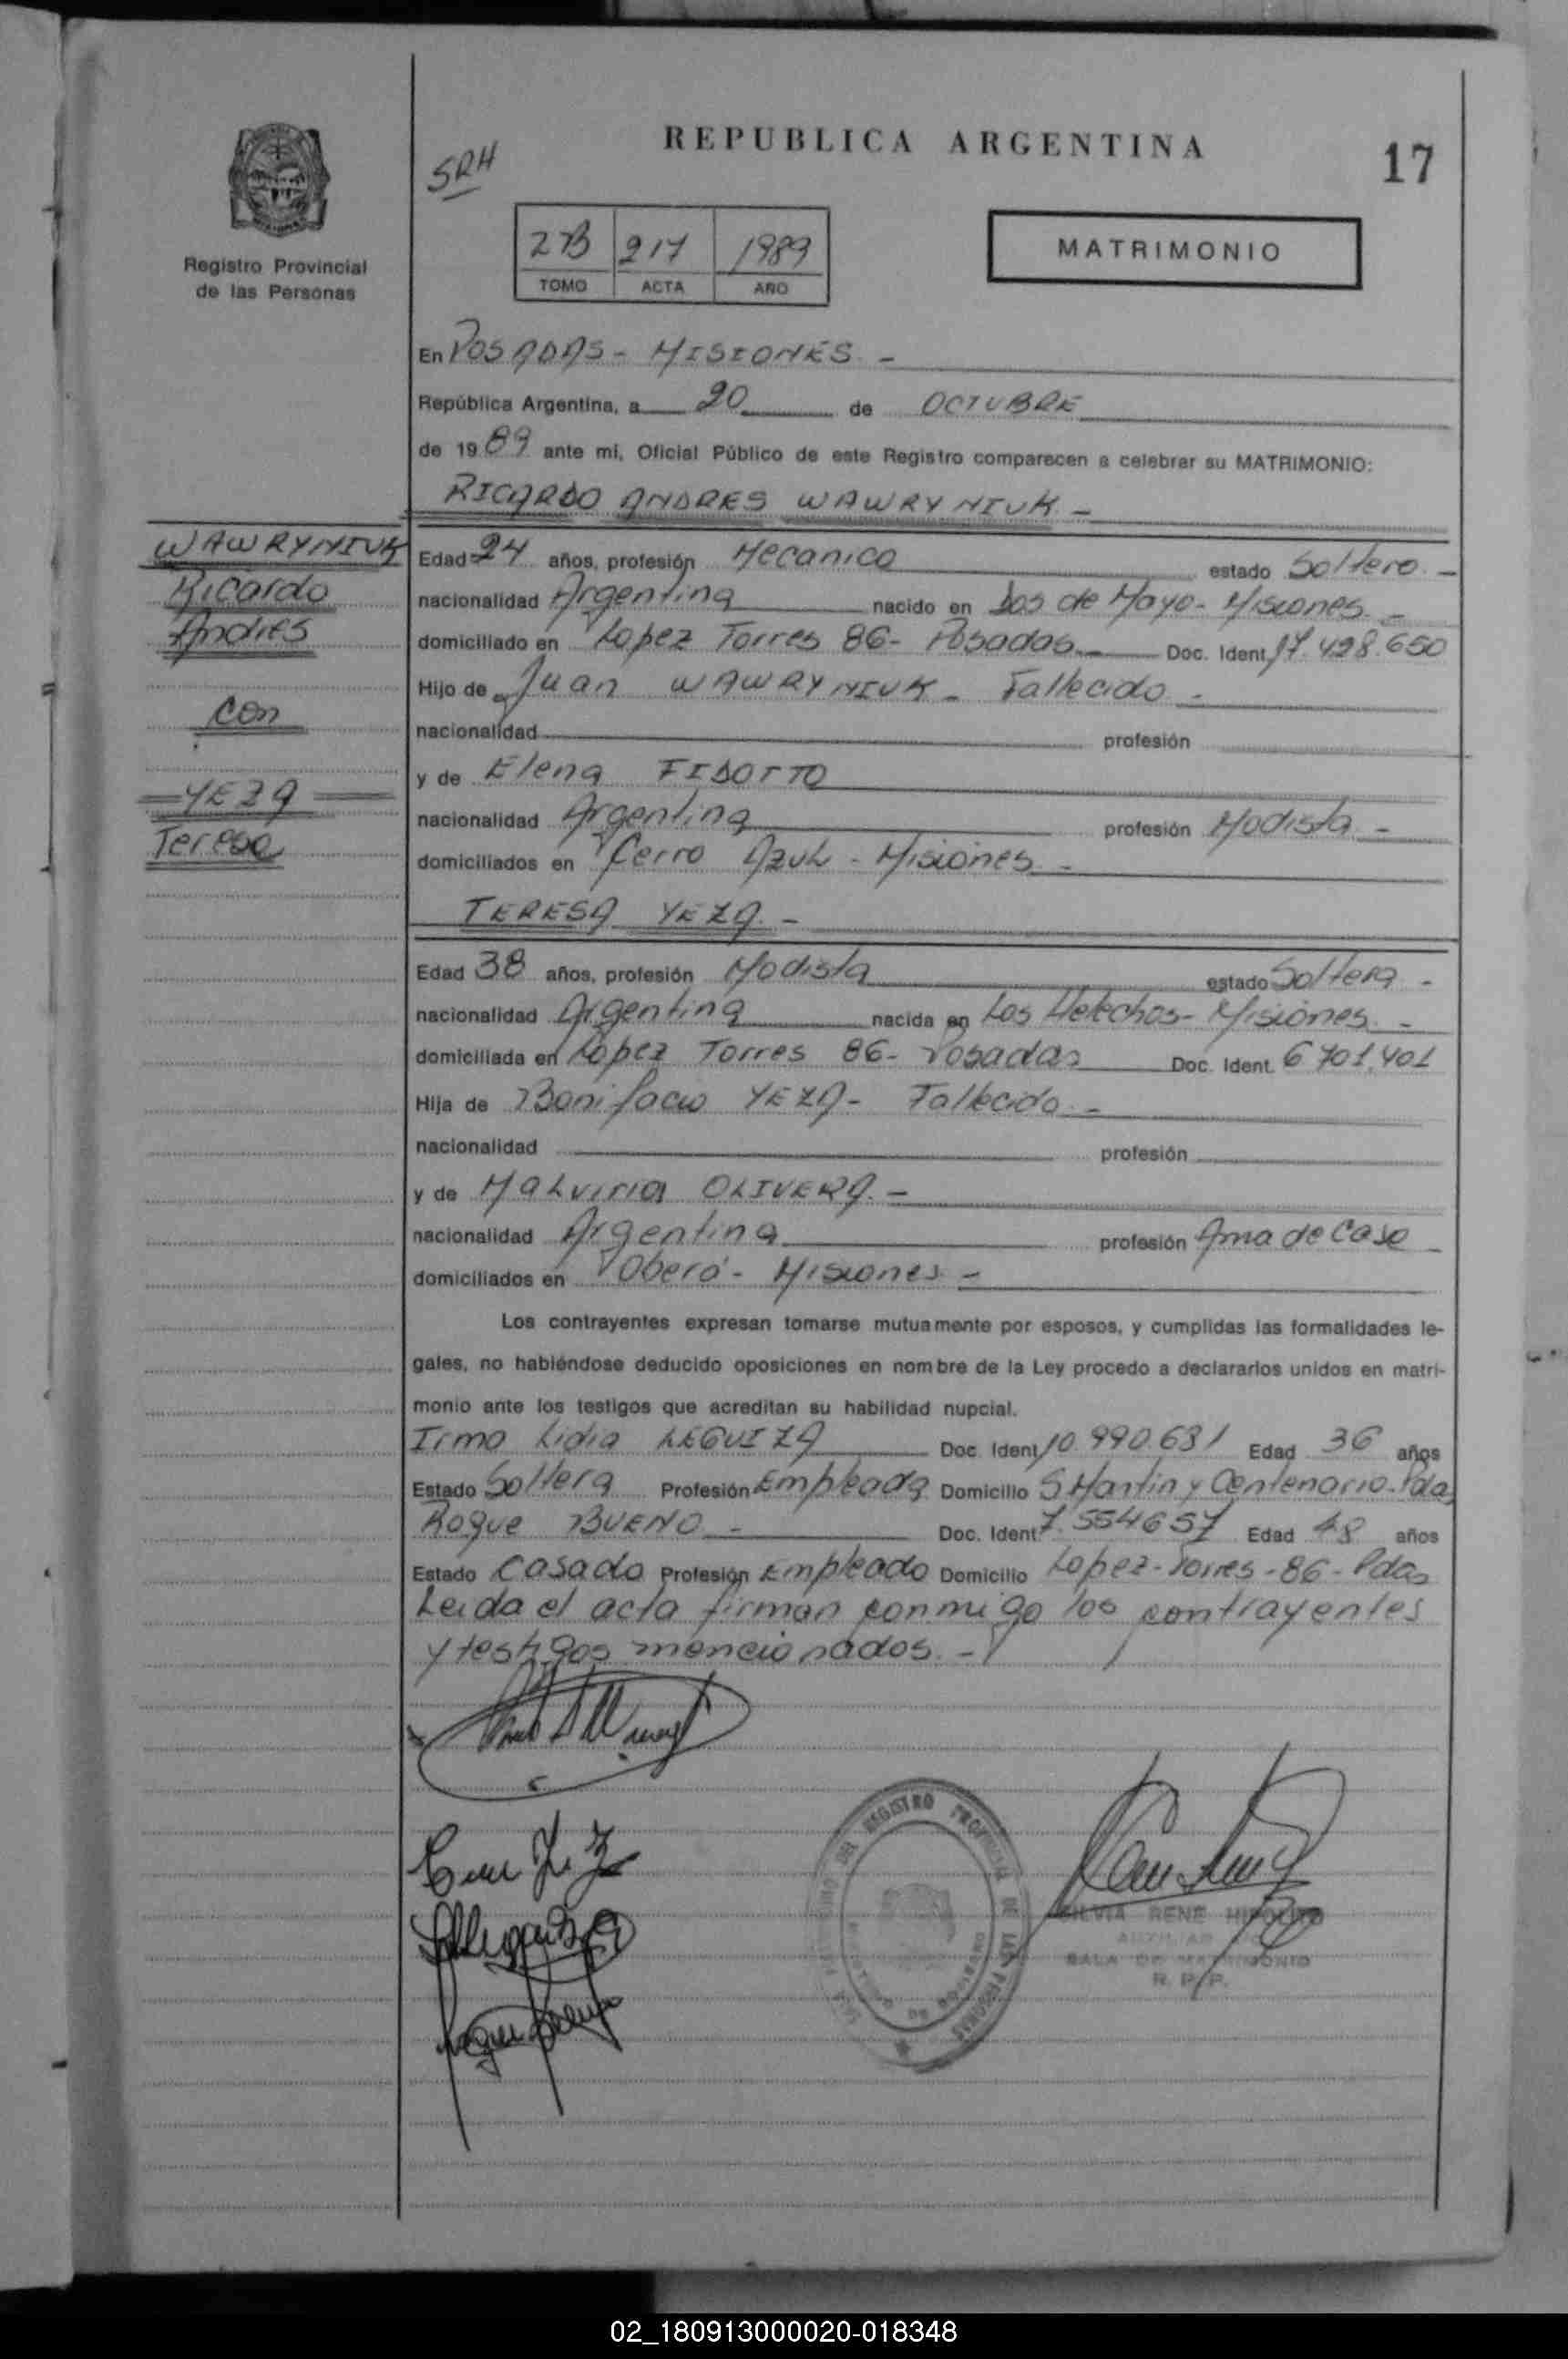 REPUBLICA ARGENTINA
17
SRH
Registro Provincial
de las Personas
2B 217 1989
TOMO ACTA AÑO
MATRIMONIO
En POSADAS - MISIONES -
República Argentina, a 20 de OCTUBRE
de 1989 ante mi, Oficial Público de este Registro comparecen a celebrar su MATRIMONIO:
RICARDO ANDRES WAWRYNIUK -
WAWRYNIUK
Ricardo
Andrés
con
YEZA
Teresa
Edad 24 años, profesión Mecanico estado Soltero -
nacionalidad Argentina nacido en Dos de Mayo - Misiones -
domiciliado en Lopez Torres 86 - Posadas - Doc. Ident 17.428.650
Hijo de Juan WAWRYNIUK - Fallecido -
nacionalidad profesión
y de Elena FIDOTTO
nacionalidad Argentina profesión Modista -
domiciliados en Cerro Azul - Misiones -
TERESA YEZA -
Edad 38 años, profesión Modista estado Soltera -
nacionalidad Argentina nacida en Los Helechos - Misiones -
domiciliada en Lopez Torres 86 - Posadas Doc. Ident. 6 701.401
Hija de Bonifacio YEZA - Fallecido -
nacionalidad profesión
y de Malvina OLIVERA -
nacionalidad Argentina profesión Ama de Casa
domiciliados en Oberá - Misiones -
Los contrayentes expresan tomarse mutuamente por esposos, y cumplidas las formalidades le-
gales, no habiéndose deducido oposiciones en nombre de la Ley procedo a declararlos unidos en matri-
monio ante los testigos que acreditan su habilidad nupcial.
Irma Lidia LEGUIZA Doc. Ident 10.990.631 Edad 36 años
Estado Soltera Profesión Empleada Domicilio S. Martin y Centenario - Pdas
Roque BUENO - Doc. Ident 7.554657 Edad 48 años
Estado Casado Profesión Empleado Domicilio Lopez - Torres - 86 - Pdas
Leida el acta firman conmigo los contrayentes
y testigos mencionados. -
REGISTRO PROVINCIAL DE LAS PERSONAS
SILVIA RENE HIPOLITO
AUXILIAR
SALA DE MATRIMONIO
R. P. P.
02_180913000020-018348